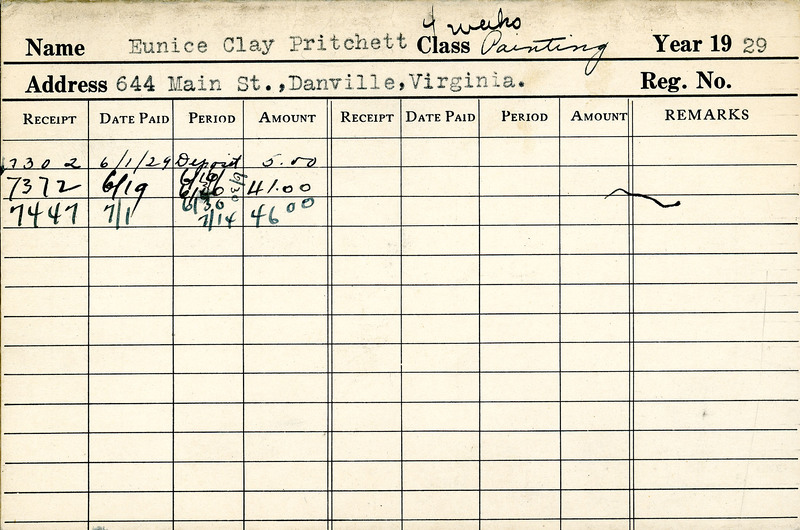 4 weeks
Name Eunice Clay Pritchett Class Painting Year 19 29
Address 644 Main St.,Danville,Virginia. Reg. No.
RECEIPT DATE PAID PERIOD AMOUNT RECEIPT DATE PAID PERIOD AMOUNT REMARKS
7302 6/1/29 Deposit 5.00
7372 6/19 6/30 41.00
7447 7/1 6/30 7/14 46 00